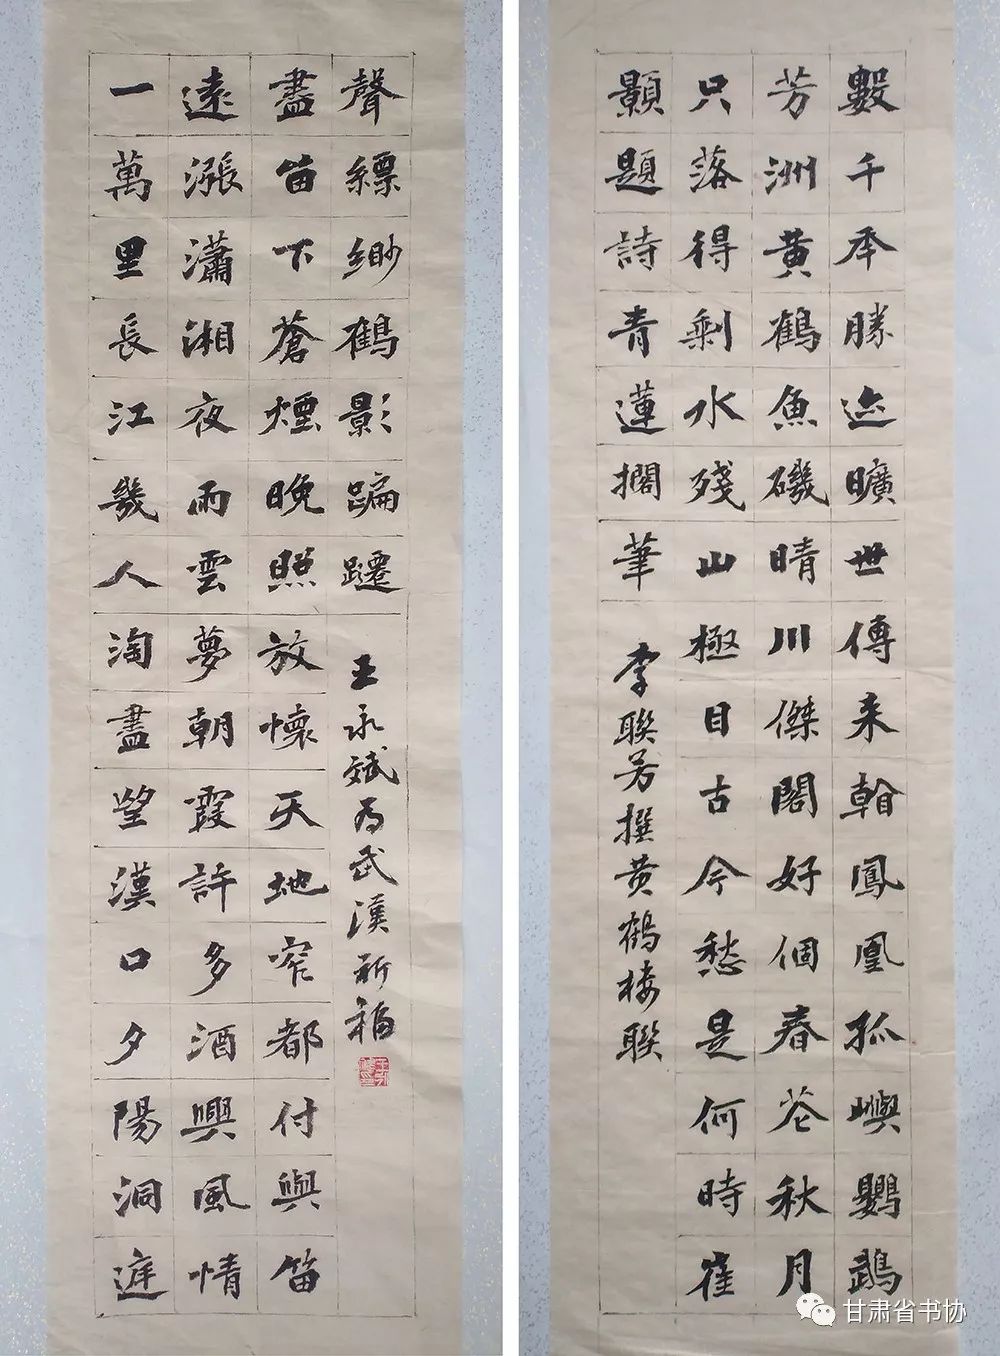 數千年勝迹曠世傳来看鳳凰孤嶼鸚鵡
芳洲黄鶴魚磯晴川傑閣好個春花秋月
只落得剩水殘山極目古今愁是何時崔
顥題詩青蓮擱筆
李聯芳撰黄鶴楼聯
一萬里長江幾人淘盡望漢口夕陽洞庭
遠漲瀟湘夜雨雲夢朝霞許多酒興風情
盡留下蒼煙晚照放懷天地窄都付與笛
聲縹緲鶴影蹁躚
王永斌为武漢祈福
甘肃省书协